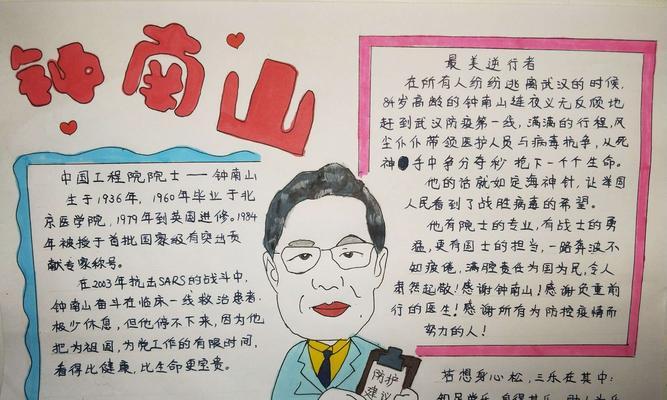 钟南山
中国工程院院士——钟南山
生于1936年，1960年毕业于北
京医学院，1979年到英国进修。1984
年被授予首批国家级有突出贡
献专家称号。
在2003年抗击SARS的战斗中，
钟南山奋斗在临床一线救治患者，
极少休息，但他停不下来，因为他
把为祖国，为党工作的有限时间，
看得比健康，比生命更宝贵。
最美逆行者
在所有人纷纷逃离武汉的时候，
84岁高龄的钟南山连夜义无反顾地
赶到武汉防疫第一线，满满的行程，风
尘仆仆带领医护人员与病毒抗争，从死
神手中争分夺秒抢下一个个生命。
他的话就如定海神针，让举国
人民看到了战胜病毒的希望。
他有院士的专业，有战士的勇
猛，更有国士的担当，一路奔波不
知疲倦，满腔责任为国为民，令人
肃然起敬！感谢钟南山！感谢负重前
行的医生！感谢所有为防控疫情而
努力的人！
防护
建议
若想身心松，三乐在其中：